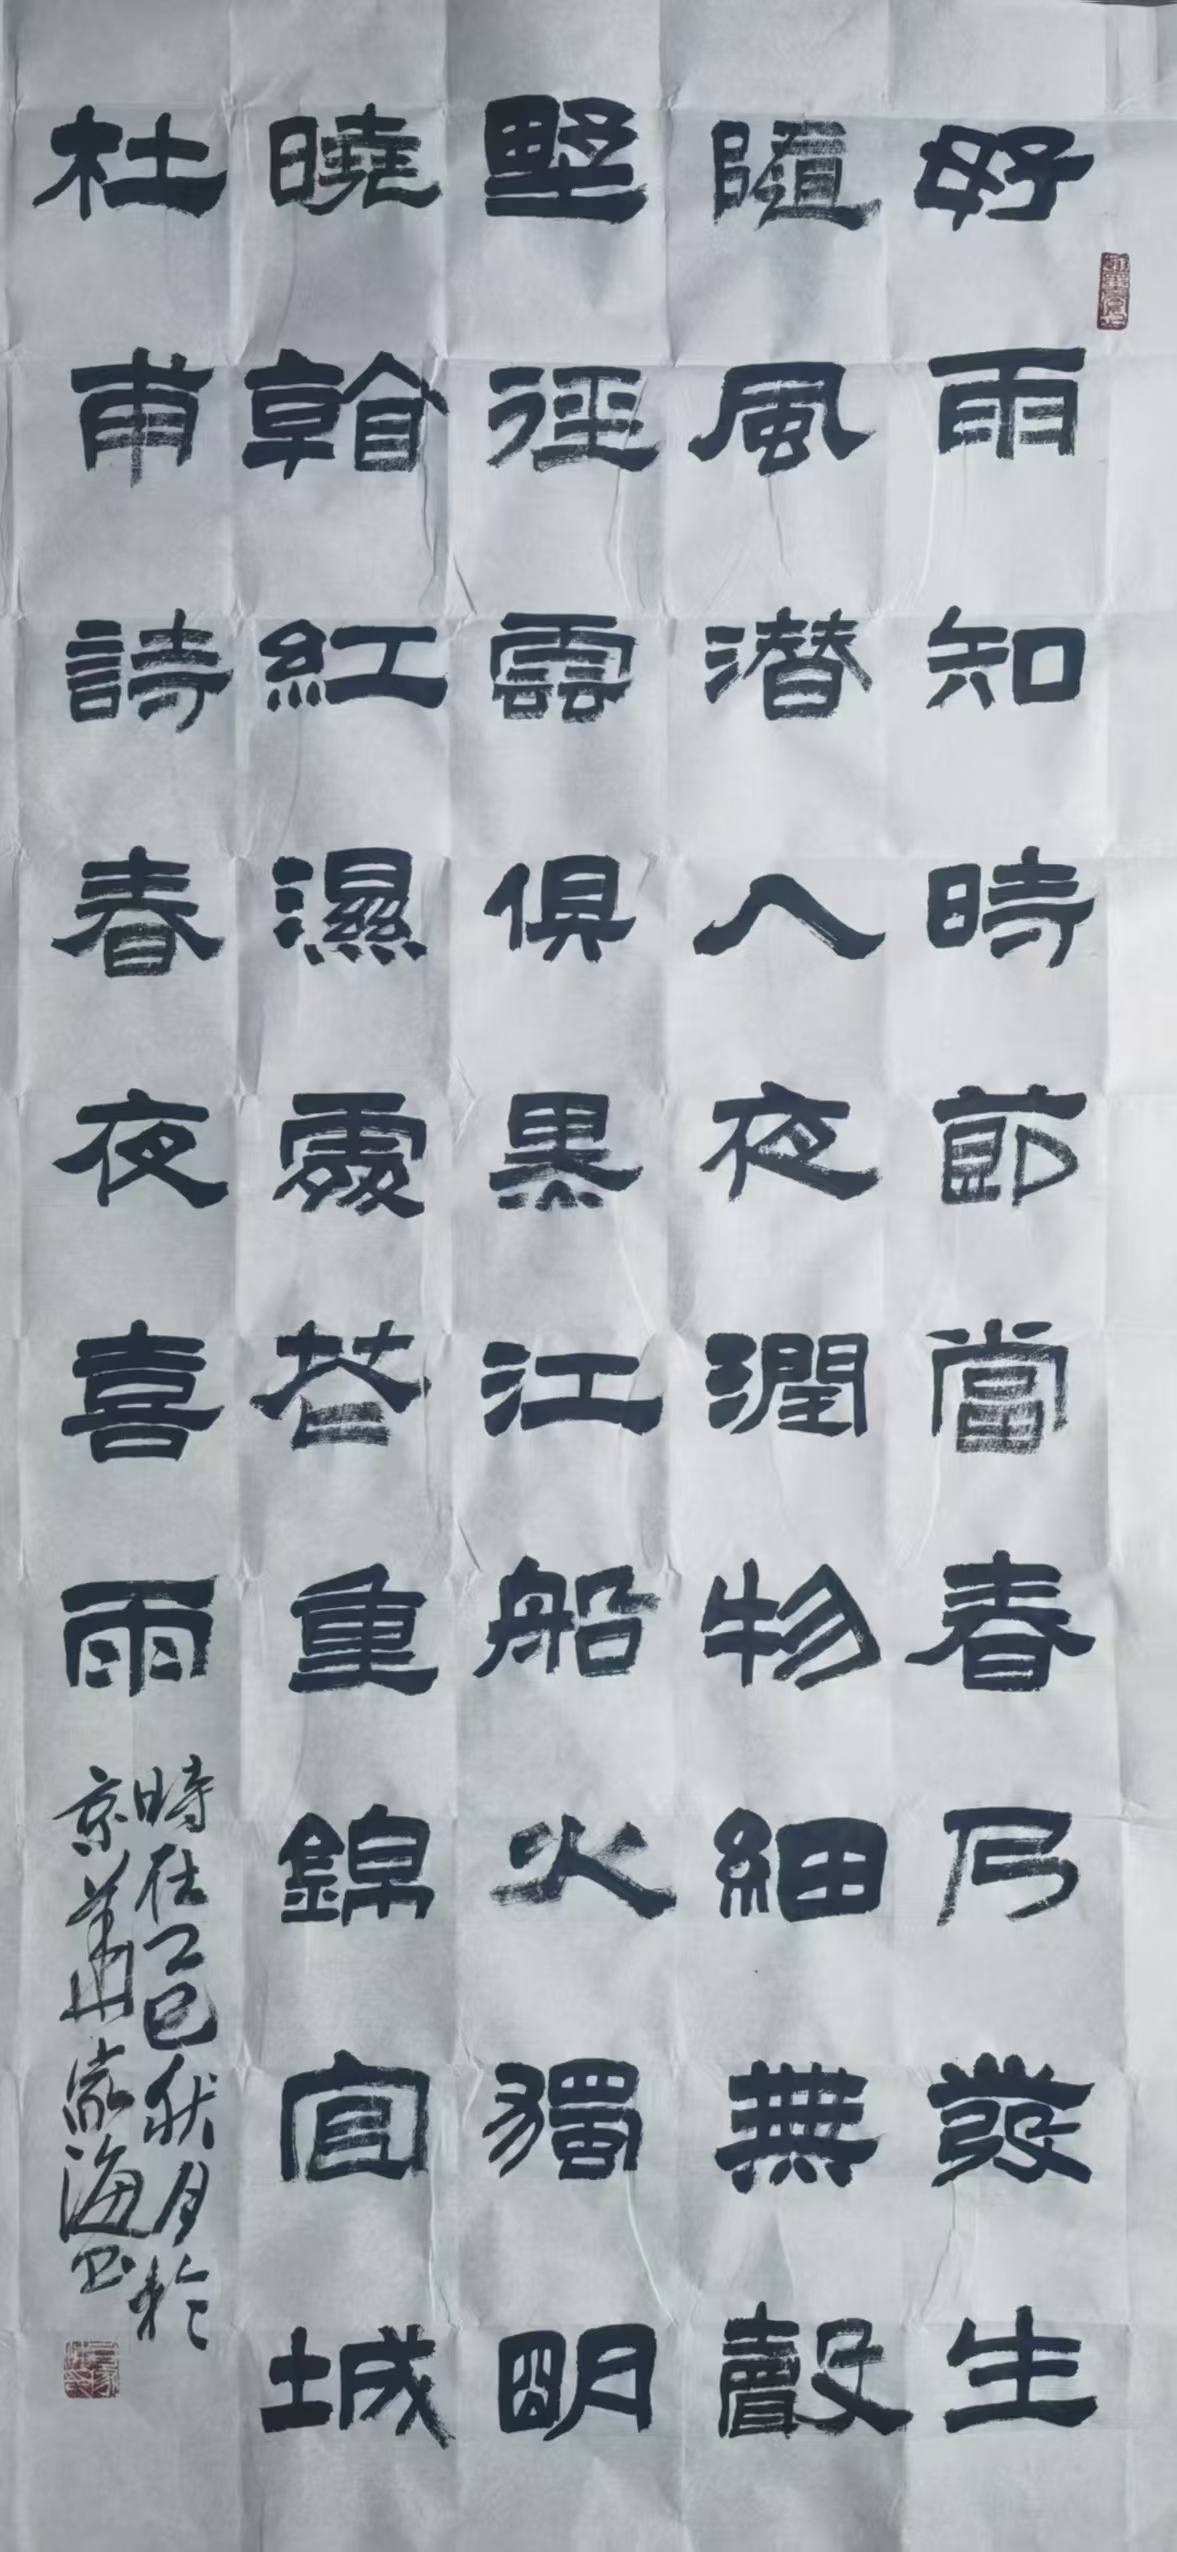 好雨知時節當春乃發生
隨風潛入夜潤物細無聲
野徑雲俱黑江船火獨明
曉看紅濕處花重錦官城
杜甫詩春夜喜雨
時在乙巳秋月於
京華家海书